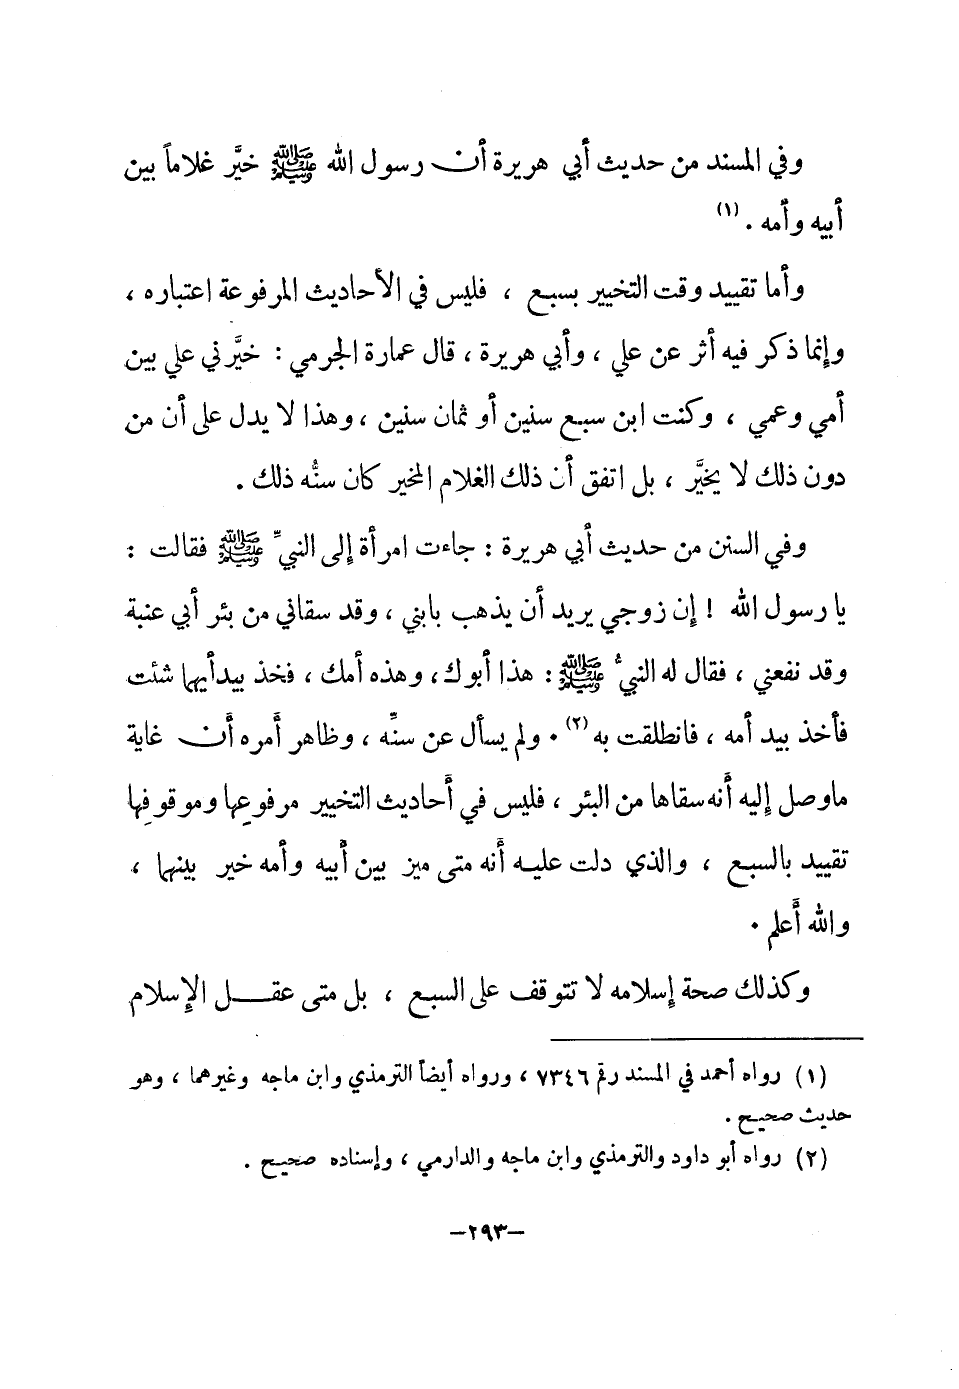 وفي المسند من حديث أبي هريرة أن رسول الله ﷺ خيَّر غلاماً بين
أبيه وأمه . (١)
وأما تقييد وقت التخيير بسبع ، فليس في الأحاديث المرفوعة اعتباره ،
وإنما ذكر فيه أثر عن علي ، وأبي هريرة ، قال عمارة الجرمي : خيَّرني علي بين
أمي وعمي ، وكنت ابن سبع سنين أو ثمان سنين ، وهذا لا يدل على أن من
دون ذلك لا يخيَّر ، بل اتفق أن ذلك الغلام المخير كان سنُّه ذلك .
وفي السنن من حديث أبي هريرة : جاءت امرأة إلى النبيِّ ﷺ فقالت :
يا رسول الله ! إن زوجي يريد أن يذهب بابني ، وقد سقاني من بئر أبي عنبة
وقد نفعني ، فقال له النبيُّ ﷺ : هذا أبوك ، وهذه أمك ، فخذ بيدأيهما شئت
فأخذ بيد أمه ، فانطلقت به (٢) . ولم يسأل عن سنِّه ، وظاهر أمره أن غاية
ماوصل إليه أنه سقاها من البئر ، فليس في أحاديث التخيير مرفوعِها وموقوفِها
تقييد بالسبع ، والذي دلت عليه أنه متى ميز بين أبيه وأمه خير بينهما ،
والله أعلم .
وكذلك صحة إسلامه لا تتوقف على السبع ، بل متى عقل الإسلام
(١) رواه أحمد في المسند رقم ٧٣٤٦ ، ورواه أيضاً الترمذي وابن ماجه وغيرهما ، وهو
حديث صحيح .
(٢) رواه أبو داود والترمذي وابن ماجه والدارمي ، وإسناده صحيح .
–٢٩٣–